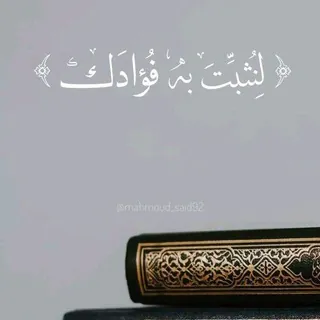 ﴿ لِنُثَبِّتَ بِهِ فُؤَادَكَ ﴾
@mahmoud_said92